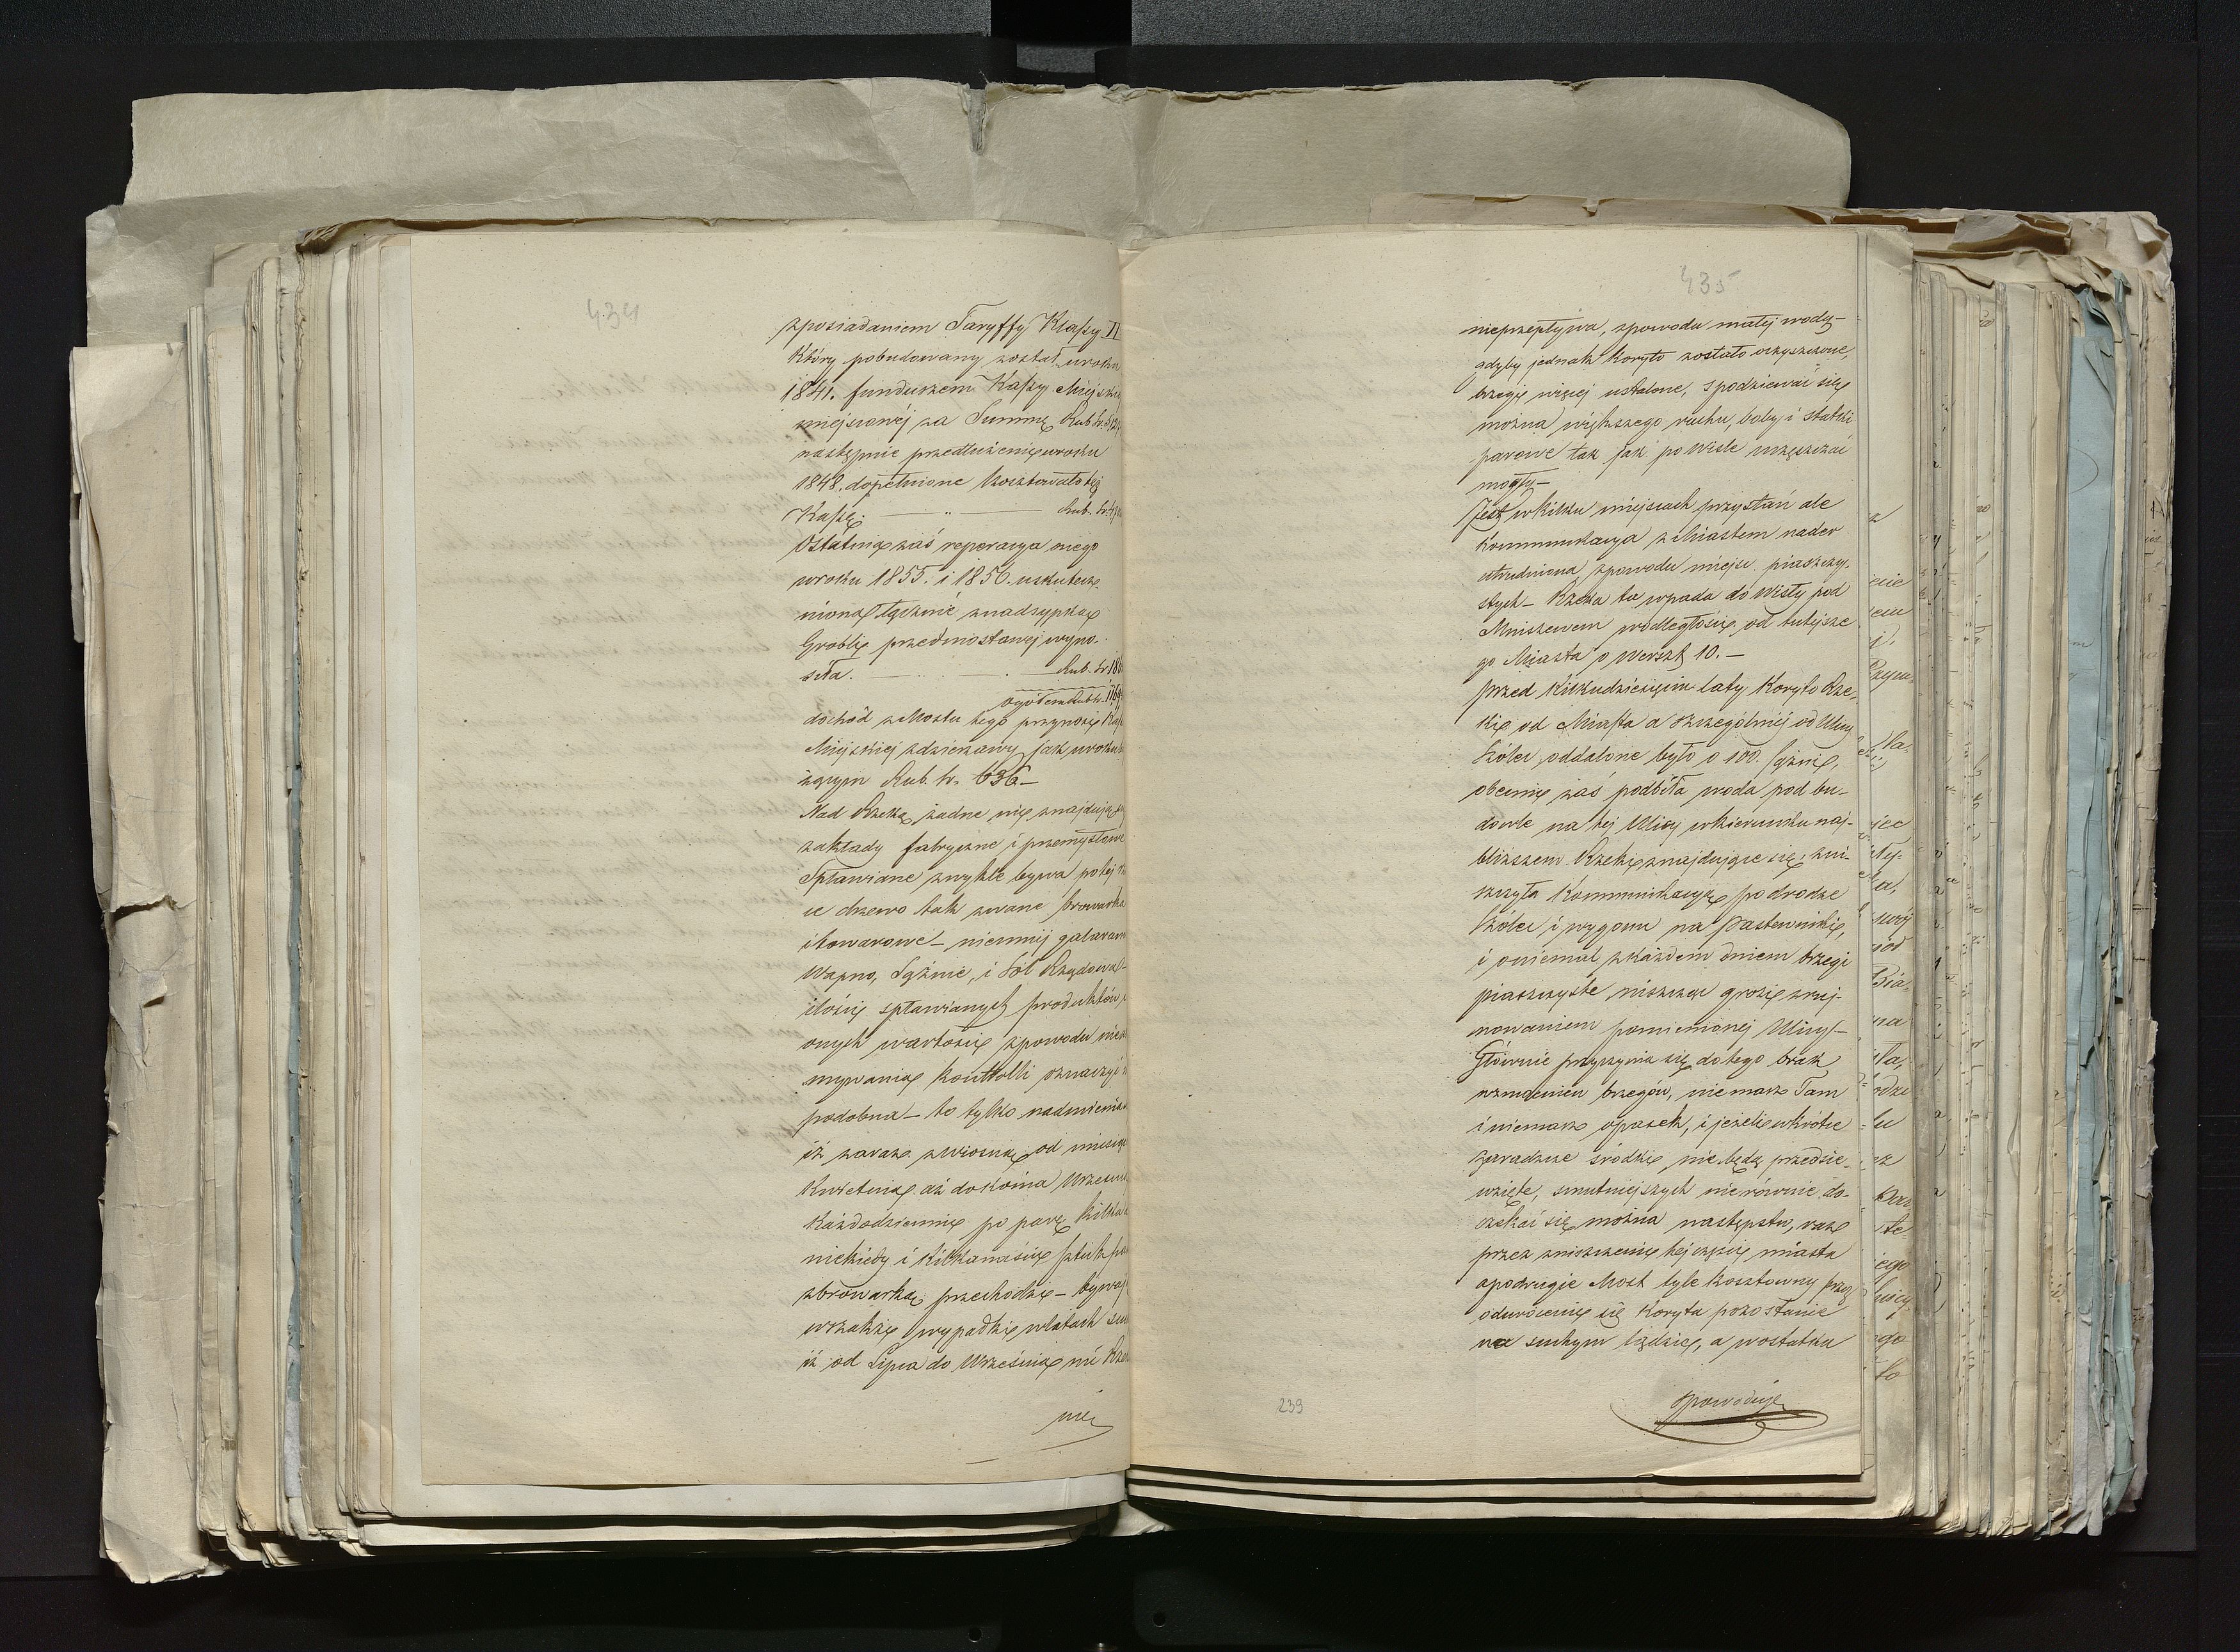 434
zposiadaniem Taryffy Klassy II
Który pobudowany został wroku
1841. funduszem Kassy Miejskie
miejscowéj za Summę Rub. sr.
następnie przedłużenie wroku
1848. dopełnione kosztowało tęż
Kassę. — „ — Rub. sr.
Ostatnia zaś reperacya onego
wroku 1855. i 1856. uskutecz-
niona łącznie znadsypką
Grobli przedmostowej wyno-
siła. — Rub. sr.
ogółem Rub. sr.
dochód z Mostu tego przynosi Kas
Miejskiej zdzierżawy jak wroku
zącym Rub. sr. 636 —
Nad Rzeką żadne nie znajdują się
zakłady fabryczne i przemysłowe
Spławiane zwykle bywa po tej rze
ce drzewo tak zwane browarka
i towarowe — niemniej galaram
Wapno, Sążnie, i Sól Rządowa —
ilości spławianych produktów,
onych wartości zpowodu nieu
mywania Kontrolli oznaczyć
podobna — to tylko nadmienia
iż zaraz z wiosną od miesiąc
Kwietnia aż do końca Wrześni
Każdodziennie po parę kilka
niekiedy i kilkanaście sztuk
zbrowarką przechodzi — bywaj
wszakże wypadki w latach su
iż od Lipca do Września nic Rze
nie
435
nieprzepływa, zpowodu małej wody —
gdyby jednak Koryto zostało oczyszczone,
brzegi więcej ustalone, spodziewać się
można większego ruchu, boby i statki
parowe tak jak po Wiśle uczęszczać
mogły —
Jest w kilku miejscach przystań ale
Kommunikacya z Miastem nader
utrudniona zpowodu miejsc piaszczy-
stych — Rzeka ta wpada do Wisły pod
Mniszewem w odległości od tutejsze
go Miasta o Werszt 10. —
Przed kilkudziesięciu laty Koryto Rze-
ki od Miasta a szczególniej od Ulicy
Kólci oddalone było o 100. sążni,
obecnie zaś podbiła woda pod bu-
dowle na tej Ulicy w kierunku naj-
bliższem Rzeki znajdujące się, zni-
szczyła Kommunikacyą po drodze
Kólci i wygonu na Pastewniki,
i oniemal z każdem dniem brzegi
piaszczyste niszcząc grozi zruj-
nowaniem pomienionej Ulicy —
Głównie przyczynia się do tego brak
wzmocnień brzegów, niemasz Tam
i niemasz opasek, i jeżeli wkrótce
zaradcze środki nie będą przedsie-
wzięte, smutniejszych nierównie do-
czekać się można następstw, raz
przez zniszczenie tej części miasta
apodrugie Most tyle kosztowny przez
odwrócenie się Koryta pozostanie
na suchym lądzie, a w ostatku
spowoduje
239